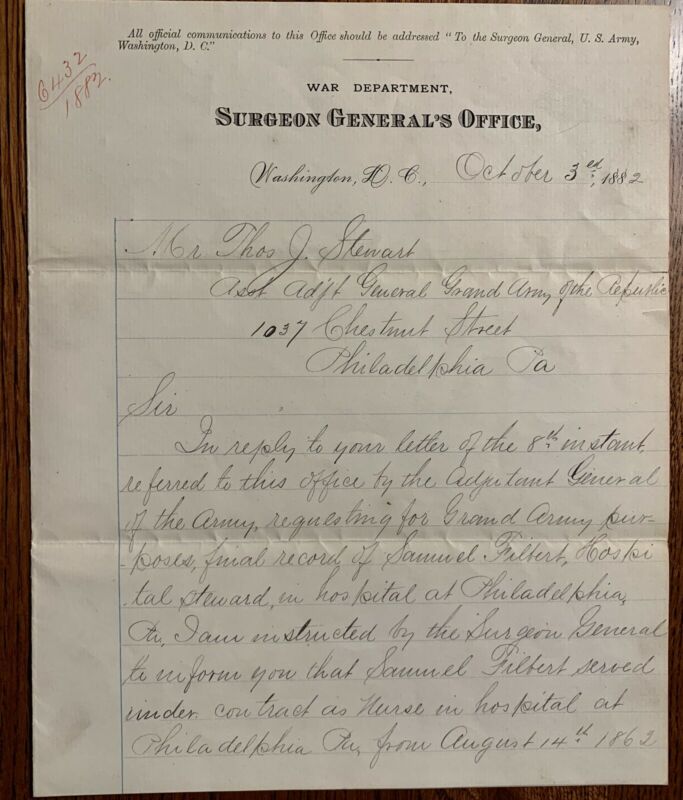 All official communications to this Office should be addressed "To the Surgeon General, U. S. Army,
Washington, D. C."
6432
1882.
WAR DEPARTMENT,
SURGEON GENERAL'S OFFICE,
Washington, D. C., October 3ed, 1882
Mr Thos J. Stewart
Asst Adjt General Grand Army of the Republic
1037 Chestnut Street
Philadelphia Pa
Sir
In reply to your letter of the 8th instant,
referred to this office by the Adjutant General
of the Army, requesting for Grand Army pur-
poses, final record of Samuel Filbert, Hospi
tal Steward, in hospital at Philadelphia,
Pa, I am instructed by the Surgeon General
to inform you that Samuel Filbert served
under contract as Nurse in hospital at
Philadelphia Pa, from August 14th 1862